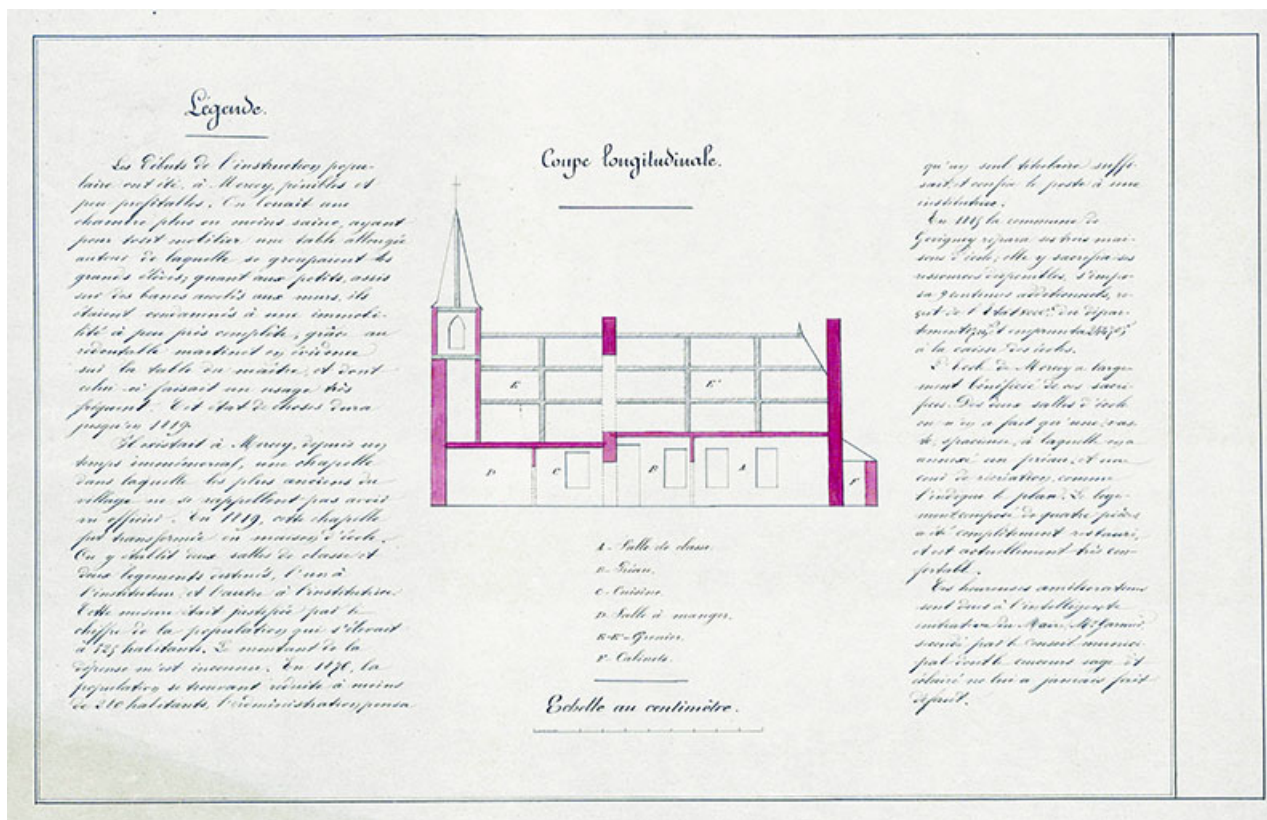 Légende.
Les débuts de l'instruction popu-
laire ont été, à Mercey, pénibles et
peu profitables. On louait une
chambre plus ou moins saine, ayant
pour tout mobilier une table allongée
autour de laquelle se groupaient les
grands élèves; quant aux petits, assis
sur des bancs accotés aux murs, ils
étaient condamnés à une immobi-
lité à peu près complète, grâce au
redoutable martinet en évidence
sur la table du maître, et dont
celui-ci faisait un usage très
fréquent. Cet état de choses dura
jusqu'en 1819.
Il existait à Mercey, depuis un
temps immémorial, une chapelle
dans laquelle les plus anciens du
village ne se rappellent pas avoir
vu officier. En 1819, cette chapelle
fut transformée en maison d'école.
On y établit deux salles de classe et
deux logements destinés, l'un à
l'instituteur, et l'autre à l'institutrice.
Cette mesure était justifiée par le
chiffre de la population qui s'élevait
à 525 habitants. Le montant de la
dépense m'est inconnu. En 1876, la
population se trouvant réduite à moins
de 210 habitants, l'administration pensa
Coupe longitudinale.
E
E'
D
C
B
A
F
A - Salle de classe.
B - Préau.
C - Cuisine.
D - Salle à manger.
E-E' - Grenier.
F - Cabinets.
Echelle au centimètre.
qu'un seul titulaire suffi-
sait, et confia le poste à une
institutrice.
En 1885 la commune de
Gevigney répara ses trois mai-
sons d'école; elle y sacrifia ses
ressources disponibles, s'impo-
sa centimes additionnels, re-
çut de l'Etat du dépar-
tement et emprunta
à la caisse des écoles.
L'école de Mercey a large-
ment bénéficié de ces sacri-
fices. Des deux salles d'école
on n'en a fait qu'une, vas-
te, spacieuse, à laquelle on a
annexé un préau, et une
cour de récréation, comme
l'indique le plan. Le loge-
ment composé de quatre pièces
a été complètement restauré,
et est actuellement très con-
fortable.
Ces heureuses améliorations
sont dues à l'intelligente
initiative du Maire, Mr
secondé par le Conseil munici-
pal dont le concours sage et
éclairé ne lui a jamais fait
défaut.